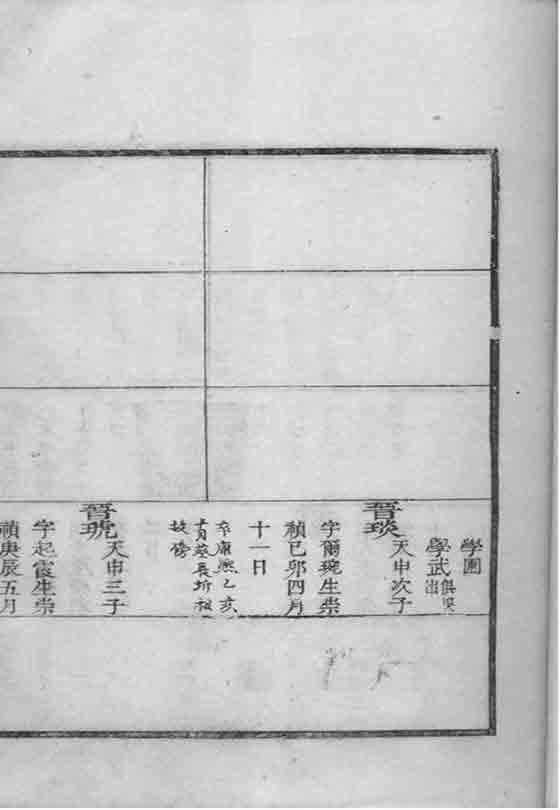 學圃
學武俱吳出
晉琰
天申次子
字爾琬生崇
禎己卯四月
十一日
卒康熙乙亥
十月葵長圻祖
坟傍
晉琥
天申三子
字起霞生崇
禎庚辰五月